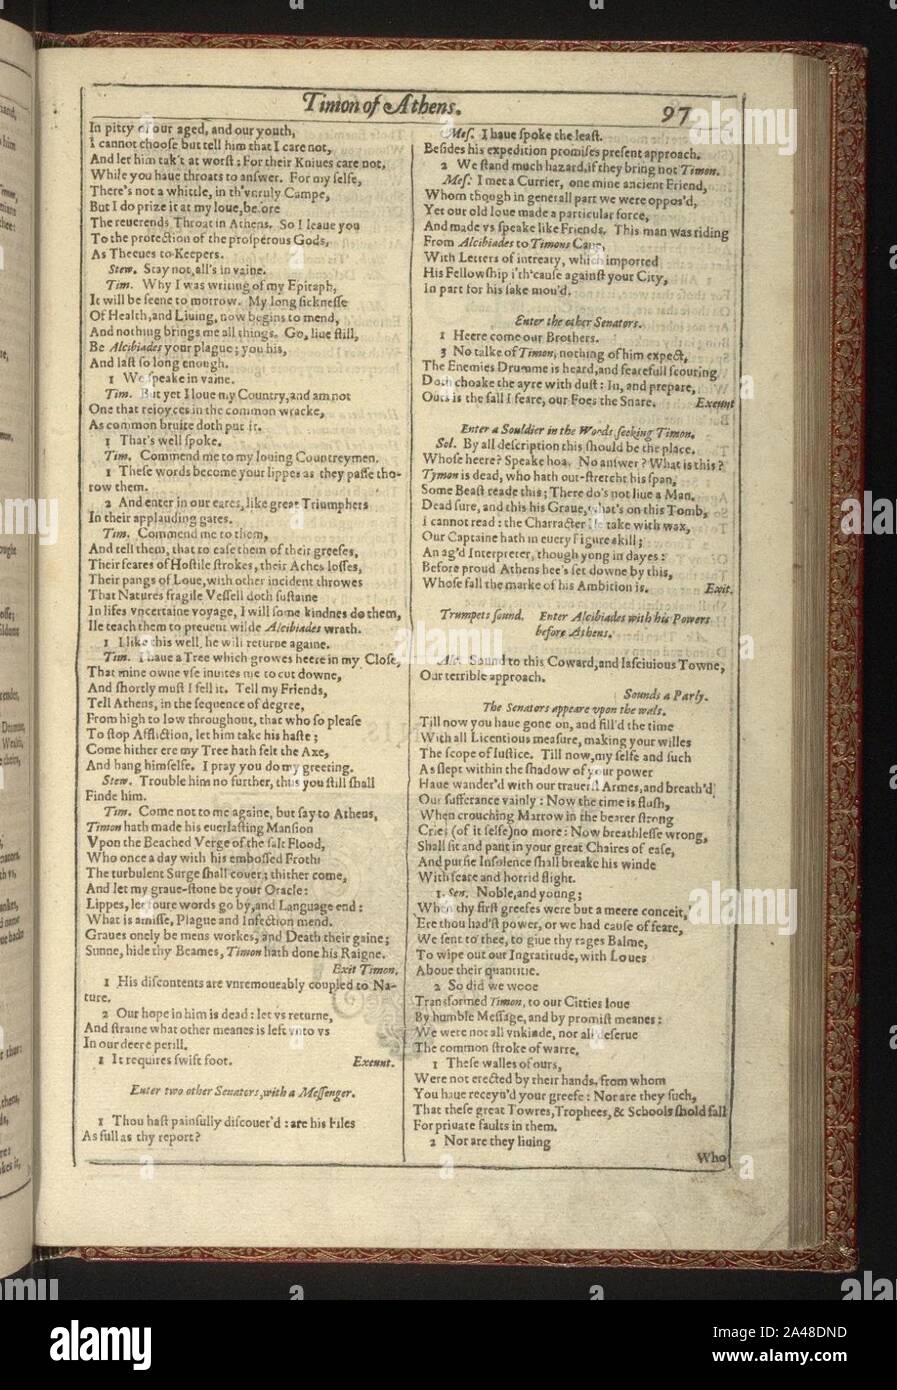 Timon of Athens.
97
In pitty of our aged, and our youth,
I cannot choose but tell him that I care not,
And let him tak't at worst: For their Kniues care not,
While you haue throats to answer. For my selfe,
There's not a whittle, in th'vnruly Campe,
But I do prize it at my loue, before
The reuerends Throat in Athens. So I leaue you
To the protection of the prosperous Gods,
As Theeues to Keepers.
Stew. Stay not, all's in vaine.
Tim. Why I was writing of my Epitaph,
It will be seene to morrow. My long sicknesse
Of Health, and Liuing, now begins to mend,
And nothing brings me all things. Go, liue still,
Be Alcibiades your plague; you his,
And last so long enough.
1 We speake in vaine.
Tim. But yet I loue my Country, and am not
One that reioyces in the common wracke,
As common bruite doth put it.
1 That's well spoke.
Tim. Commend me to my louing Countreymen.
1 These words become your lippes as they passe tho-
row them.
2 And enter in our eares, like great Triumphers
In their applauding gates.
Tim. Commend me to them,
And tell them, that to ease them of their greefes,
Their feares of Hostile strokes, their Aches losses,
Their pangs of Loue, with other incident throwes
That Natures fragile Vessell doth sustaine
In lifes vncertaine voyage, I will some kindnes do them,
Ile teach them to preuent wilde Alcibiades wrath.
1 I like this well, he will returne againe.
Tim. I haue a Tree which growes heere in my Close,
That mine owne vse inuites me to cut downe,
And shortly must I fell it. Tell my Friends,
Tell Athens, in the sequence of degree,
From high to low throughout, that who so please
To stop Affliction, let him take his haste;
Come hither ere my Tree hath felt the Axe,
And hang himselfe. I pray you do my greeting.
Stew. Trouble him no further, thus you still shall
Finde him.
Tim. Come not to me againe, but say to Athens,
Timon hath made his euerlasting Mansion
Vpon the Beached Verge of the salt Flood,
Who once a day with his embossed Froth
The turbulent Surge shall couer; thither come,
And let my graue-stone be your Oracle:
Lippes, let soure words go by, and Language end:
What is amisse, Plague and Infection mend.
Graues onely be mens workes, and Death their gaine;
Sunne, hide thy Beames, Timon hath done his Raigne.
Exit Timon.
1 His discontents are vnremoueably coupled to Na-
ture.
2 Our hope in him is dead: let vs returne,
And straine what other meanes is left vnto vs
In our deere perill.
1 It requires swift foot. Exeunt.
Enter two other Senators, with a Messenger.
1 Thou hast painfully discouer'd: are his Files
As full as thy report?
Mes. I haue spoke the least.
Besides his expedition promises present approach.
2 We stand much hazard, if they bring not Timon.
Mes. I met a Currier, one mine ancient Friend,
Whom though in generall part we were oppos'd,
Yet our old loue made a particular force,
And made vs speake like Friends. This man was riding
From Alcibiades to Timons Caue,
With Letters of intreaty, which imported
His Fellowship i'th'cause against your City,
In part for his sake mou'd.
Enter the other Senators.
1 Heere come our Brothers.
3 No talke of Timon, nothing of him expect,
The Enemies Drumme is heard, and fearefull scouring
Doth choake the ayre with dust: In, and prepare,
Ours is the fall I feare, our Foes the Snare. Exeunt
Enter a Souldier in the Woods, seeking Timon.
Sol. By all description this should be the place.
Whose heere? Speake hoa. No answer? What is this?
Tymon is dead, who hath out-stretcht his span,
Some Beast reade this; There do's not liue a Man.
Dead sure, and this his Graue, what's on this Tomb,
I cannot read: the Charracter Ile take with wax,
Our Captaine hath in euery Figure skill;
An ag'd Interpreter, though yong in dayes:
Before proud Athens hee's set downe by this,
Whose fall the marke of his Ambition is. Exit.
Trumpets sound. Enter Alcibiades with his Powers
before Athens.
Alc. Sound to this Coward, and lasciuious Towne,
Our terrible approach.
Sounds a Parly.
The Senators appeare vpon the wals.
Till now you haue gone on, and fill'd the time
With all Licentious measure, making your willes
The scope of Iustice. Till now, my selfe and such
As slept within the shadow of your power
Haue wander'd with our trauerst Armes, and breath'd
Our sufferance vainly: Now the time is flush,
When crouching Marrow in the bearer strong
Cries (of it selfe) no more: Now breathlesse wrong,
Shall sit and pant in your great Chaires of ease,
And pursie Insolence shall breake his winde
With feare and horrid flight.
1. Sen. Noble, and young;
When thy first greefes were but a meere conceit,
Ere thou had'st power, or we had cause of feare,
We sent to thee, to giue thy rages Balme,
To wipe out our Ingratitude, with Loues
Aboue their quantitie.
2 So did we wooe
Transformed Timon, to our Citties loue
By humble Message, and by promist meanes:
We were not all vnkinde, nor all deserue
The common stroke of warre.
1 These walles of ours,
Were not erected by their hands, from whom
You haue receyu'd your greefe: Nor are they such,
That these great Towres, Trophees, & Schools shold fall
For priuate faults in them.
2 Nor are they liuing
Who
alamy
Image ID: 2A48DND
www.alamy.com